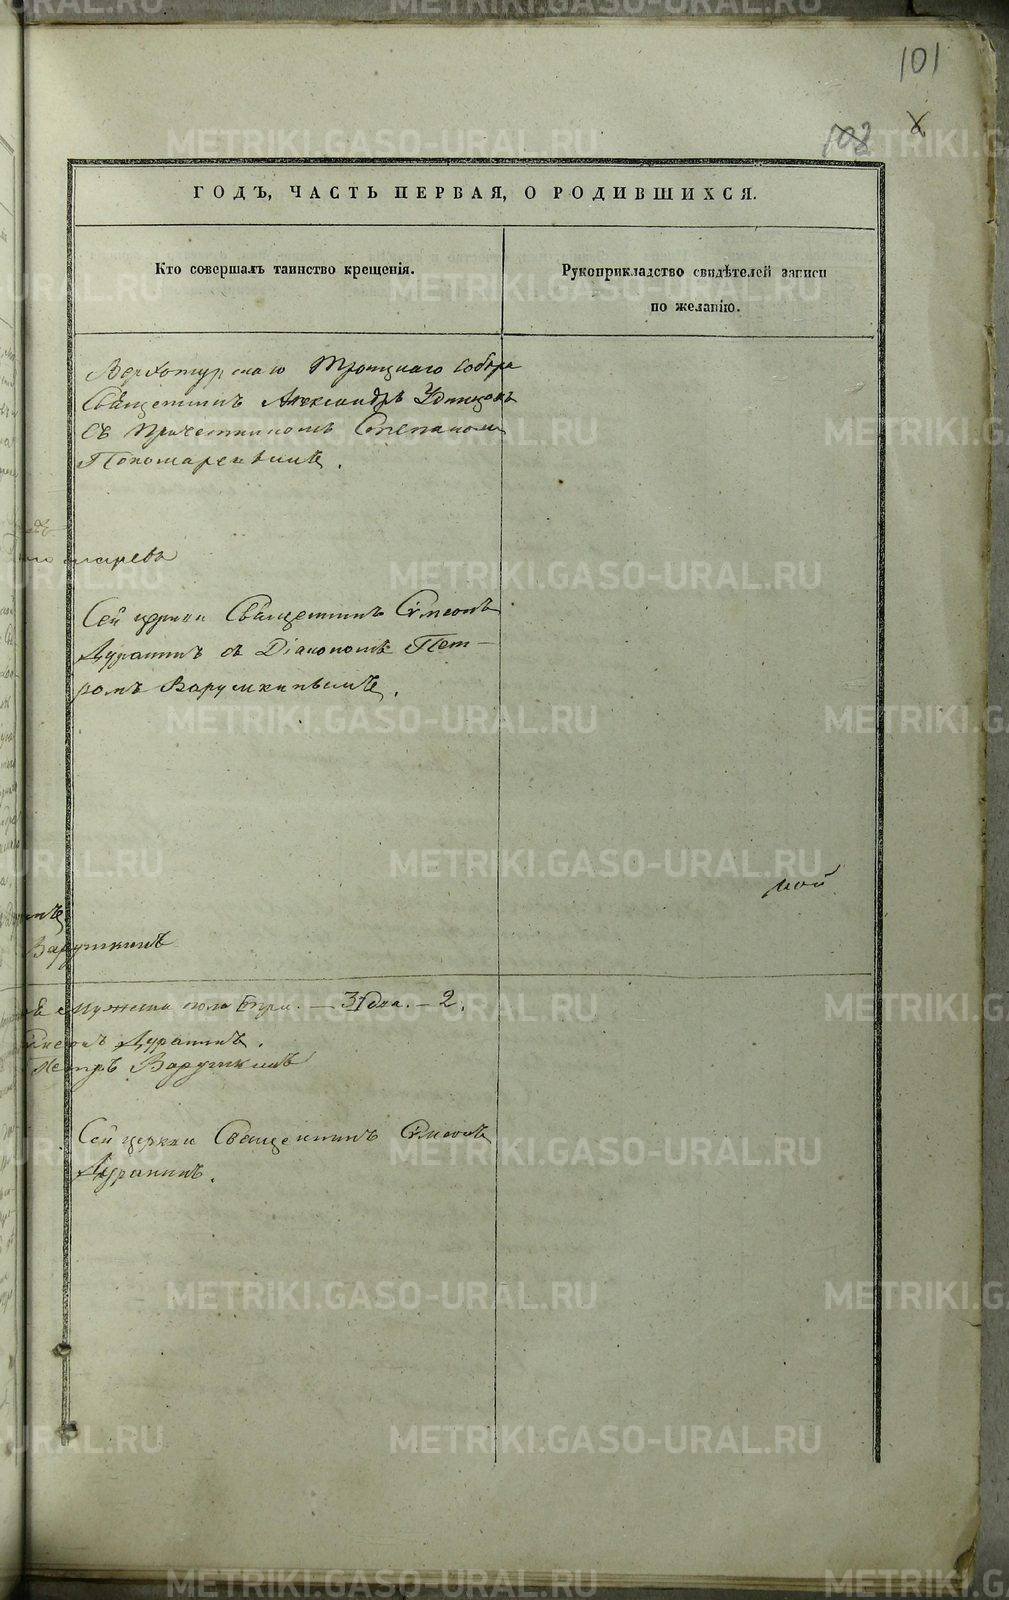 101
102
ГОДЪ, ЧАСТЬ ПЕРВАЯ, О РОДИВШИХСЯ.
Кто совершалъ таинство крещенія.
Рукоприкладство свидѣтелей записи
по желанію.
Верхотурскаго Троицкаго Собора
Священникъ Александръ Удинцовъ
съ Причетникомъ Степаномъ
Пономаревымъ.
Сей церкви Священникъ Симеонъ
Дуранинъ съ Діакономъ Пет-
ромъ Варушкинымъ.
мой
Варушкинъ
мужеска пола 3 2.
Дуранинъ.
Петръ Варушкинъ
Сей церкви Священникъ Симеонъ
Дуранинъ.
METRIKI.GASO-URAL.RU